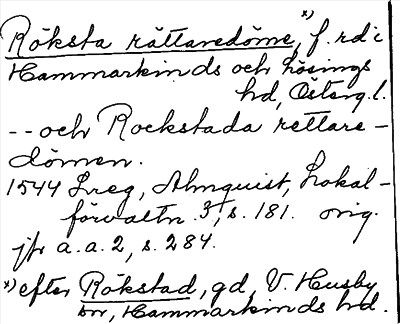 Röksta rättaredöme,ˣ⁾ f. rd i
Hammarkinds och Lösings
hd, Österg. l.
-- och Rockstada rettare-
dömen.
1544 Lreg, Almquist, Lokal-
förvaltn. 3, s. 181. orig.
jfr a. a. 2, s. 284.
ˣ⁾ efter Rökstad, gd, V. Husby
sn, Hammarkinds hd.